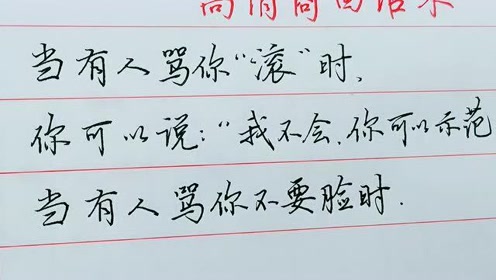 高情商回话术
当有人骂你“滚”时,
你可以说:“我不会,你可以示范
当有人骂你不要脸时.